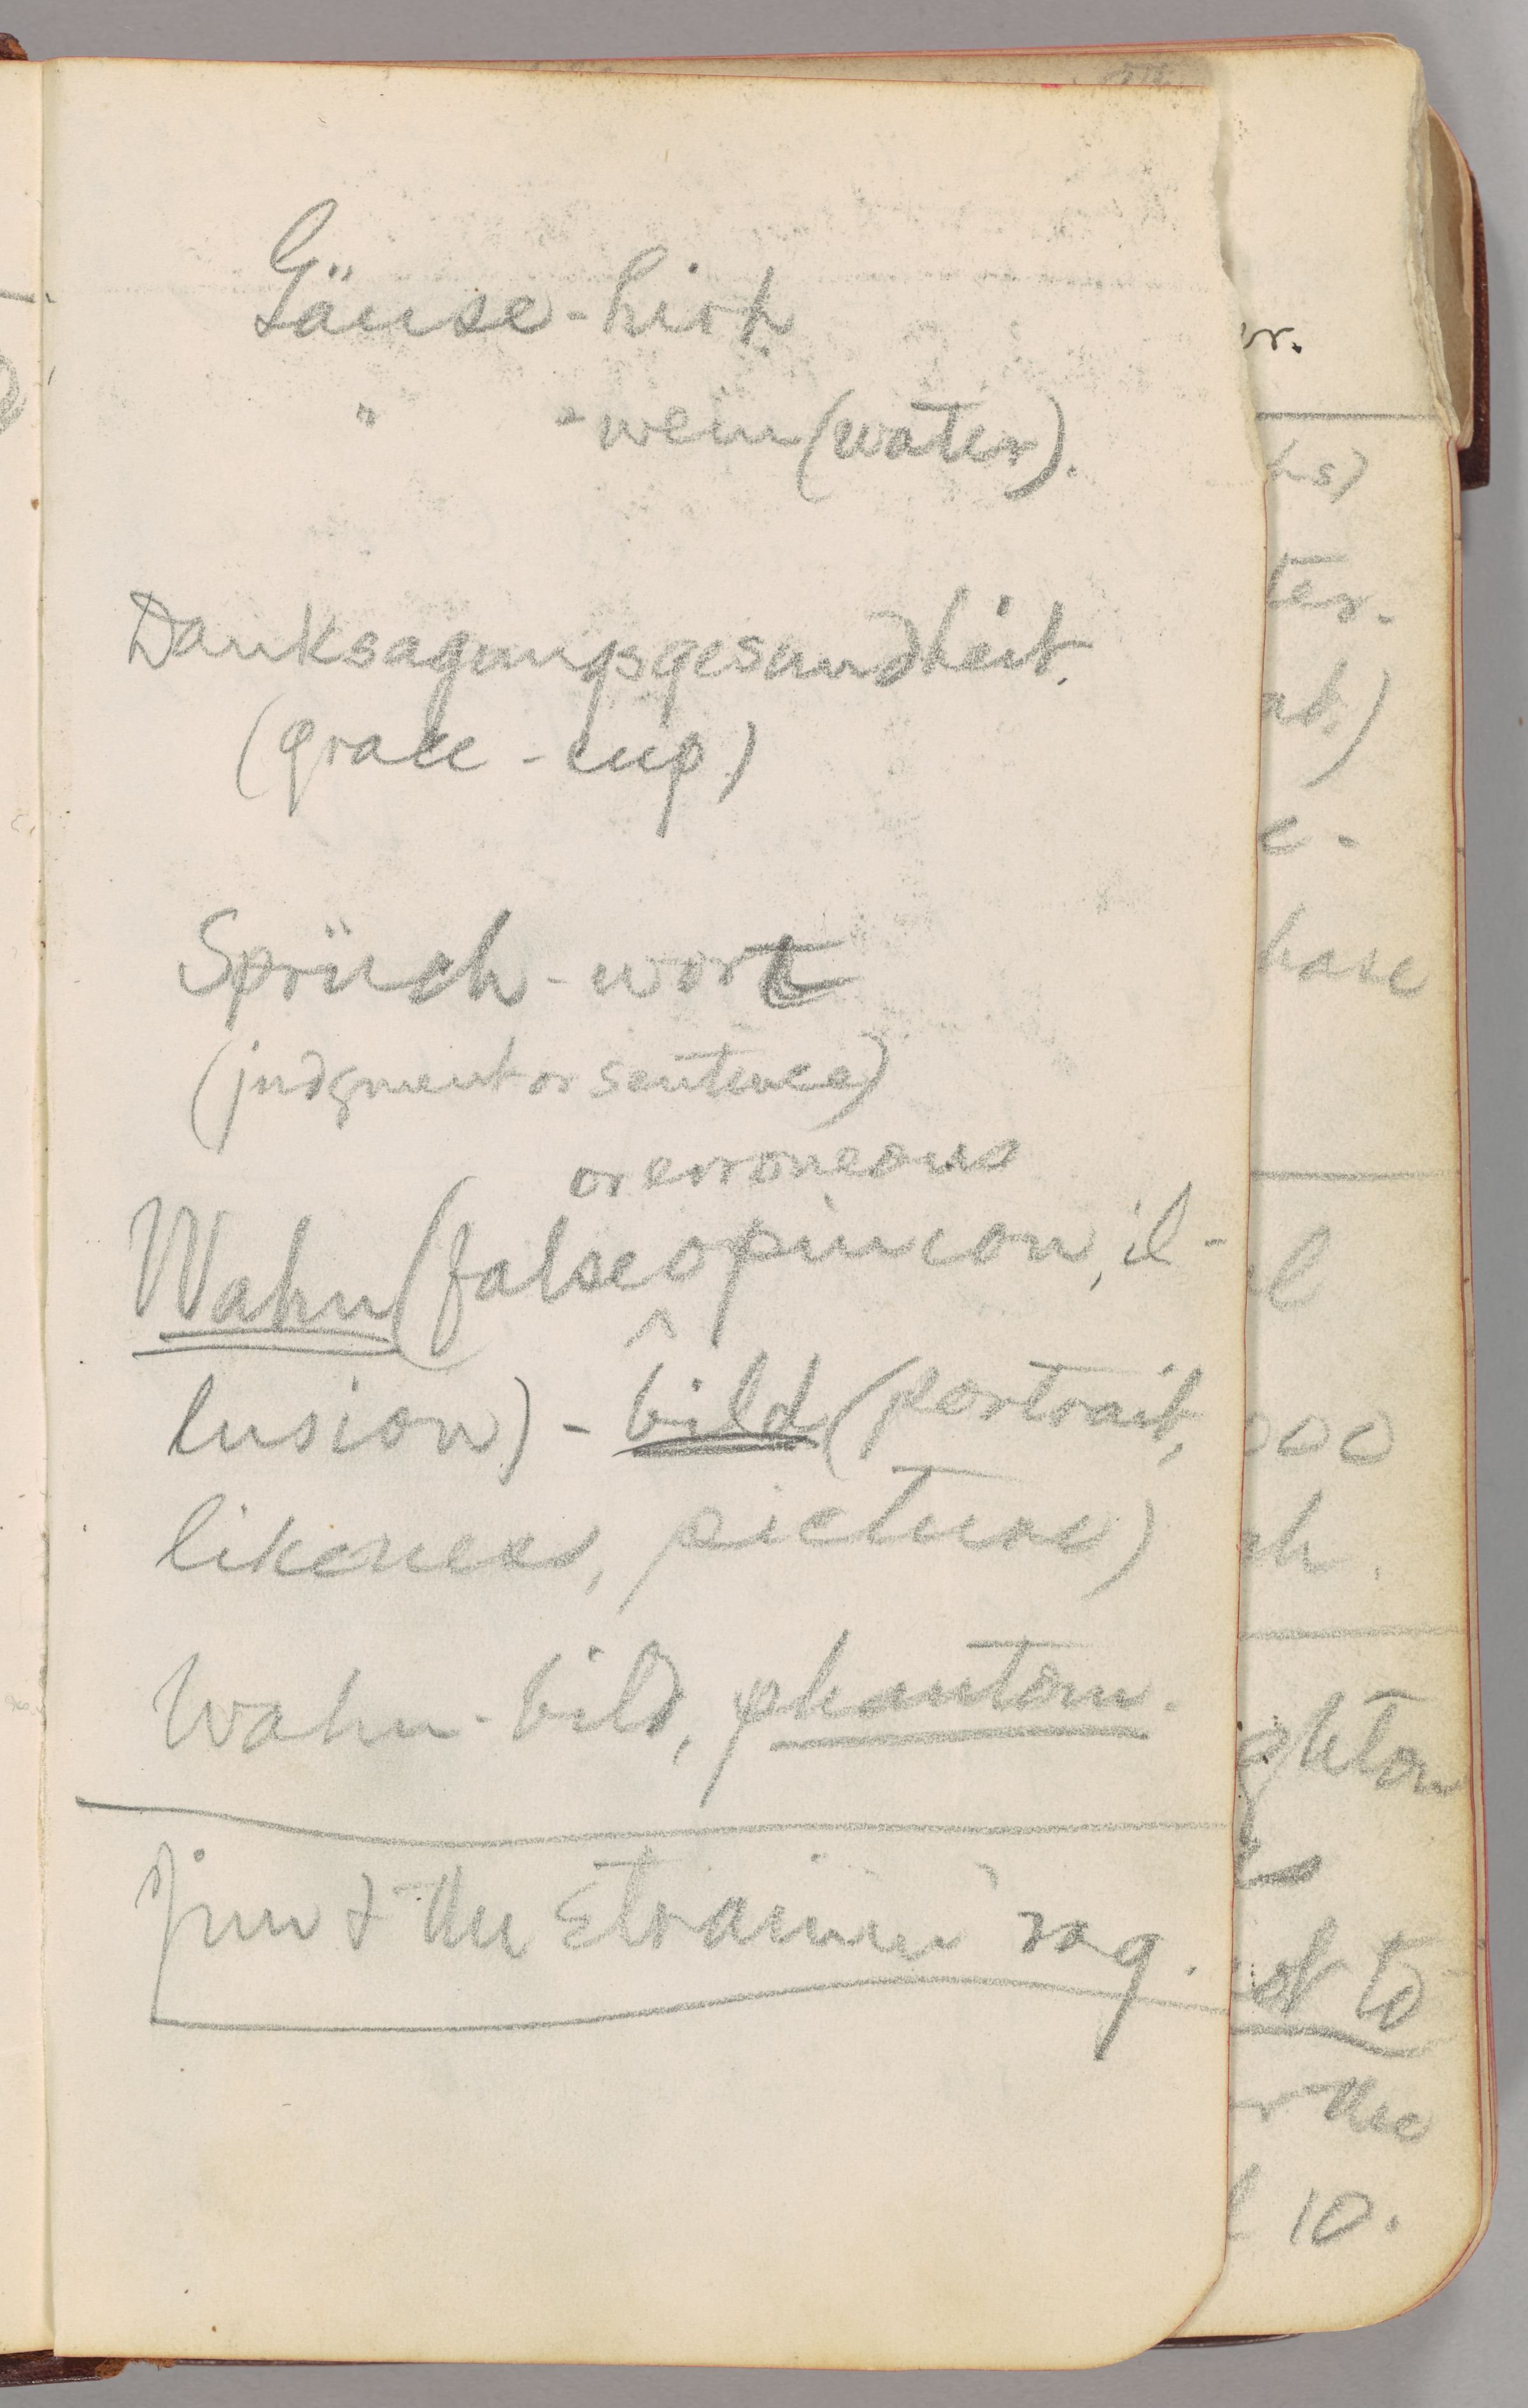 Gänse-hirt
" -wein (water).
Danksagungsgesundheit.
(grace-cup)
Sprüch-wort
(judgment or sentence)
or erroneous
Wahn (false ^ opinion, il-
lusion) - bild (portrait,
likeness, picture)
Wahn-bild, phantom.
Jim & the strainin' rag.
er.
hs)
ter.
e-
hase
000
ghton
ot to
r the
10.